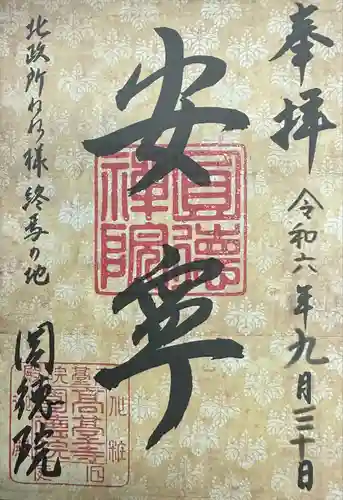 奉拝
令和六年九月三十日
安寧
圓德禅院
北政所ねね様終焉の地
圓徳院
高臺寺